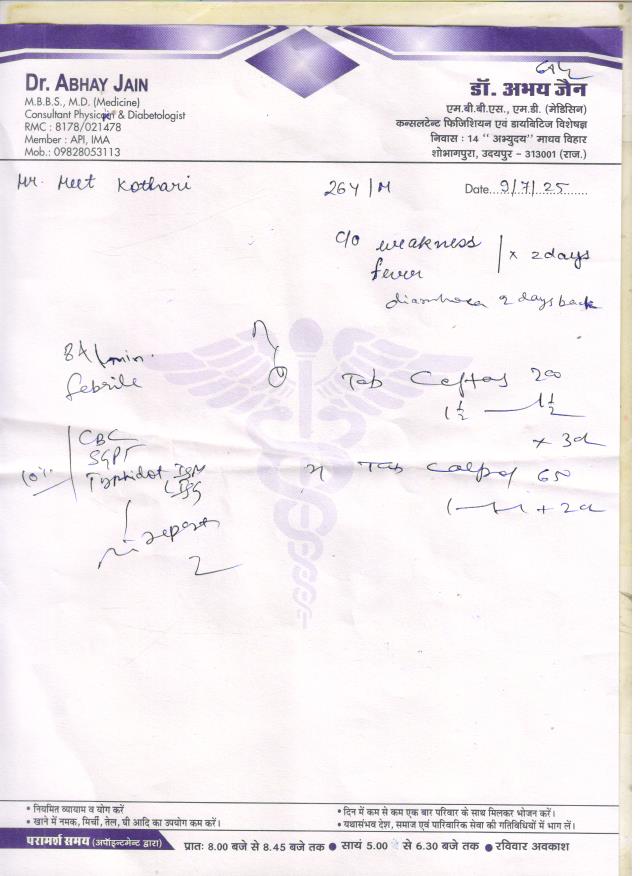 Dr. ABHAY JAIN
M.B.B.S., M.D. (Medicine)
Consultant Physician & Diabetologist
RMC : 8178/021478
Member : API, IMA
Mob.: 09828053113
डॉ. अभय जैन
एम.बी.बी.एस., एम.डी. (मेडिसिन)
कन्सलटेन्ट फिजिशियन एवं डायबिटिज विशेषज्ञ
निवास : 14 "अभ्युदय" माधव विहार
शोभागपुरा, उदयपुर – 313001 (राज.)
Mr. Meet Kothari 26Y/M Date...9/7/25
C/o weakness
fever x 2 days
diarrhoea 2 days back
84/min.
febrile
Tab 200
1½ — 1½
x 3d
CBC
SGPT
Typhidot IgM
IgG
10%
Tab Calpol 650
+ 2d
2
• नियमित व्यायाम व योग करें
• खाने में नमक, मिर्ची, तेल, घी आदि का उपयोग कम करें।
• दिन में कम से कम एक बार परिवार के साथ मिलकर भोजन करें।
• यथासंभव देश, समाज एवं पारिवारिक सेवा की गतिविधियों में भाग लें।
परामर्श समय (अपॉइन्टमेन्ट द्वारा) प्रातः 8.00 बजे से 8.45 बजे तक ● सायं 5.00 से 6.30 बजे तक ● रविवार अवकाश